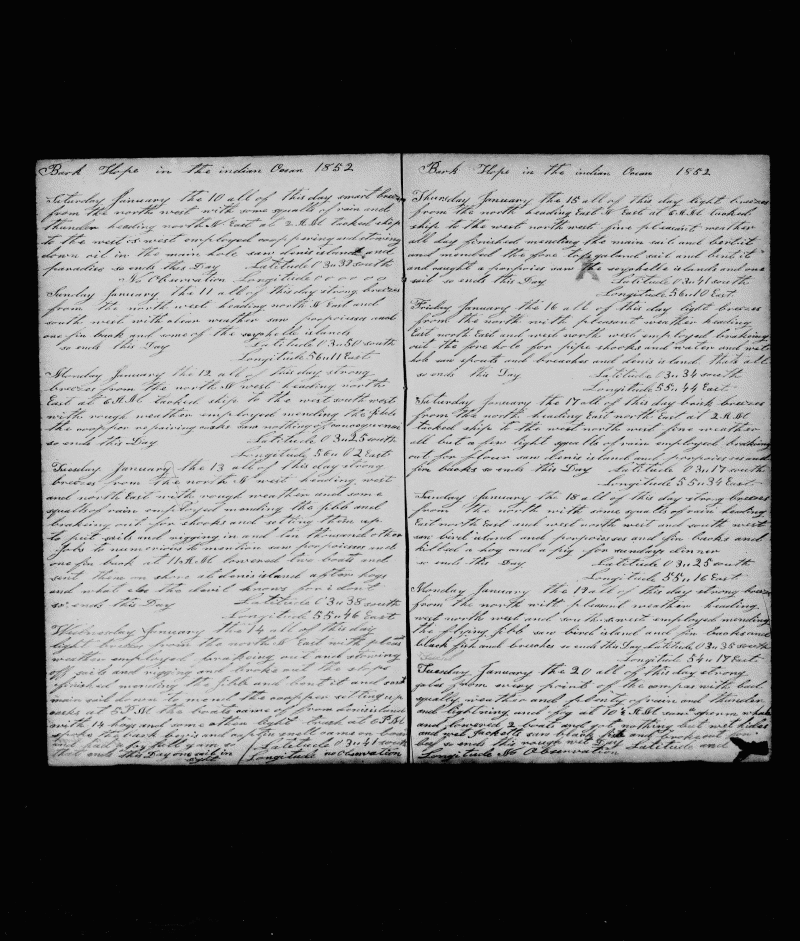 Bark Hope in the indian Ocean 1852
Saturday January the 10 all of this day smart breezes
from the north west with some squalls of rain and
thunder heading north N East at 2 A.M. tacked ship
to the west S west employed coopering and stowing
down oil in the main hole saw denis island and
paradise so ends this Day Latitude 03 n 32 south
No Observation Longitude 0 0 0 0 0 0
Sunday January the 11 all of this day strong breezes
from the north west heading north N East and
south west with clear weather saw porpoisses and
one fin back and some of the seychelle islands
so ends this Day Latitude 03 n 50 south
Longitude 56 n 11 East
Monday January the 12 all of this day strong
breezes from the north N west heading north
East at 6 A.M. tacked ship to the west south west
with rough weather employed mending the jibb
the cooper repairing casks saw nothing of consequence
so ends this Day Latitude 03 n 25 south
Longitude 56 n 02 East
Tuesday January the 13 all of this day strong
breezes from the north N west heading west
and north East with rough weather and some
squalls of rain employed mending the jibb and
breaking out for shooks and setting them up
to put sails and rigging in and ten thousand other
Jobs to numerious to mention saw porpoisses and
one fin back at 11 A.M. lowered two boats and
sent them on shore at denis island after hogs
and what else the devil knows for i dont
so ends this Day Latitude 03 n 38 south
Longitude 55 n 46 East
Wednesday January the 14 all of this day
light breezes from the north N East with pleas
weather employed and stowing
off sails and rigging and the
finished mending the jibb and bent it and sent
main sail down to mend the cooper setting up
casks at 5 P.M. the boats came of from denis island
with 14 hogs and some other light truck at 6 P.M.
spoke the bark and captin came on board
and had a
that ends this Day one sail in sight Latitude 03 n 41 south
Longitude no observation
Bark Hope in the indian Ocean 1852
Thursday January the 15 all of this day light breezes
from the north heading East N East at 6 A.M. tacked
ship to the west north west fine pleasent weather
all day finished mending the main sail and bent it
and mended the fore top galant sail and bent it
and caught a porpoise saw the seychelle islands and one
sail so ends this Day Latitude 03 n 41 south
Longitude 56 n 10 East
Friday January the 16 all of this day light breezes
from the north with pleasent weather heading
East north East and west north west employed breaking
out the fore hole for pipe shooks and water and
hole saw spouts and breaches and denis island thats all
so ends this Day Latitude 03 n 34 south
Longitude 55 n 44 East
Saturday January the 17 all of this day brisk breezes
from the north heading East north East at 2 A.M.
tacked ship to the west north west fine weather
all but a few light squalls of rain employed breaking
out for flour saw denis island and porpoisses and
fin backs so ends this Day Latitude 03 n 17 south
Longitude 55 n 34 East
Sunday January the 18 all of this day strong breezes
from the north with some squalls of rain heading
East north East and west north west and south west
saw bird island and porpoisses and fin backs and
killed a hog and a pig for sundays dinner
so ends this Day Latitude 03 n 25 south
Longitude 55 n 16 East
Monday January the 19 all of this day strong breezes
from the north with pleasent weather heading
west north west and south west employed mending
the flying jibb saw bird island and fin backs and
black fish and breaches so ends this Day Latitude 03 n 35 south
Longitude 54 n 17 East
Tuesday January the 20 all of this day strong
gales from every points of the compas with bad
squally weather and plenty of rain and thunder
and lightening and fog at 10 A.M. saw sperm whales
and lowered 2 boats and got nothing but wet hides
and wet Jacketts saw black fish and
so ends this rough wet Day Latitude and
Longitude No Observation